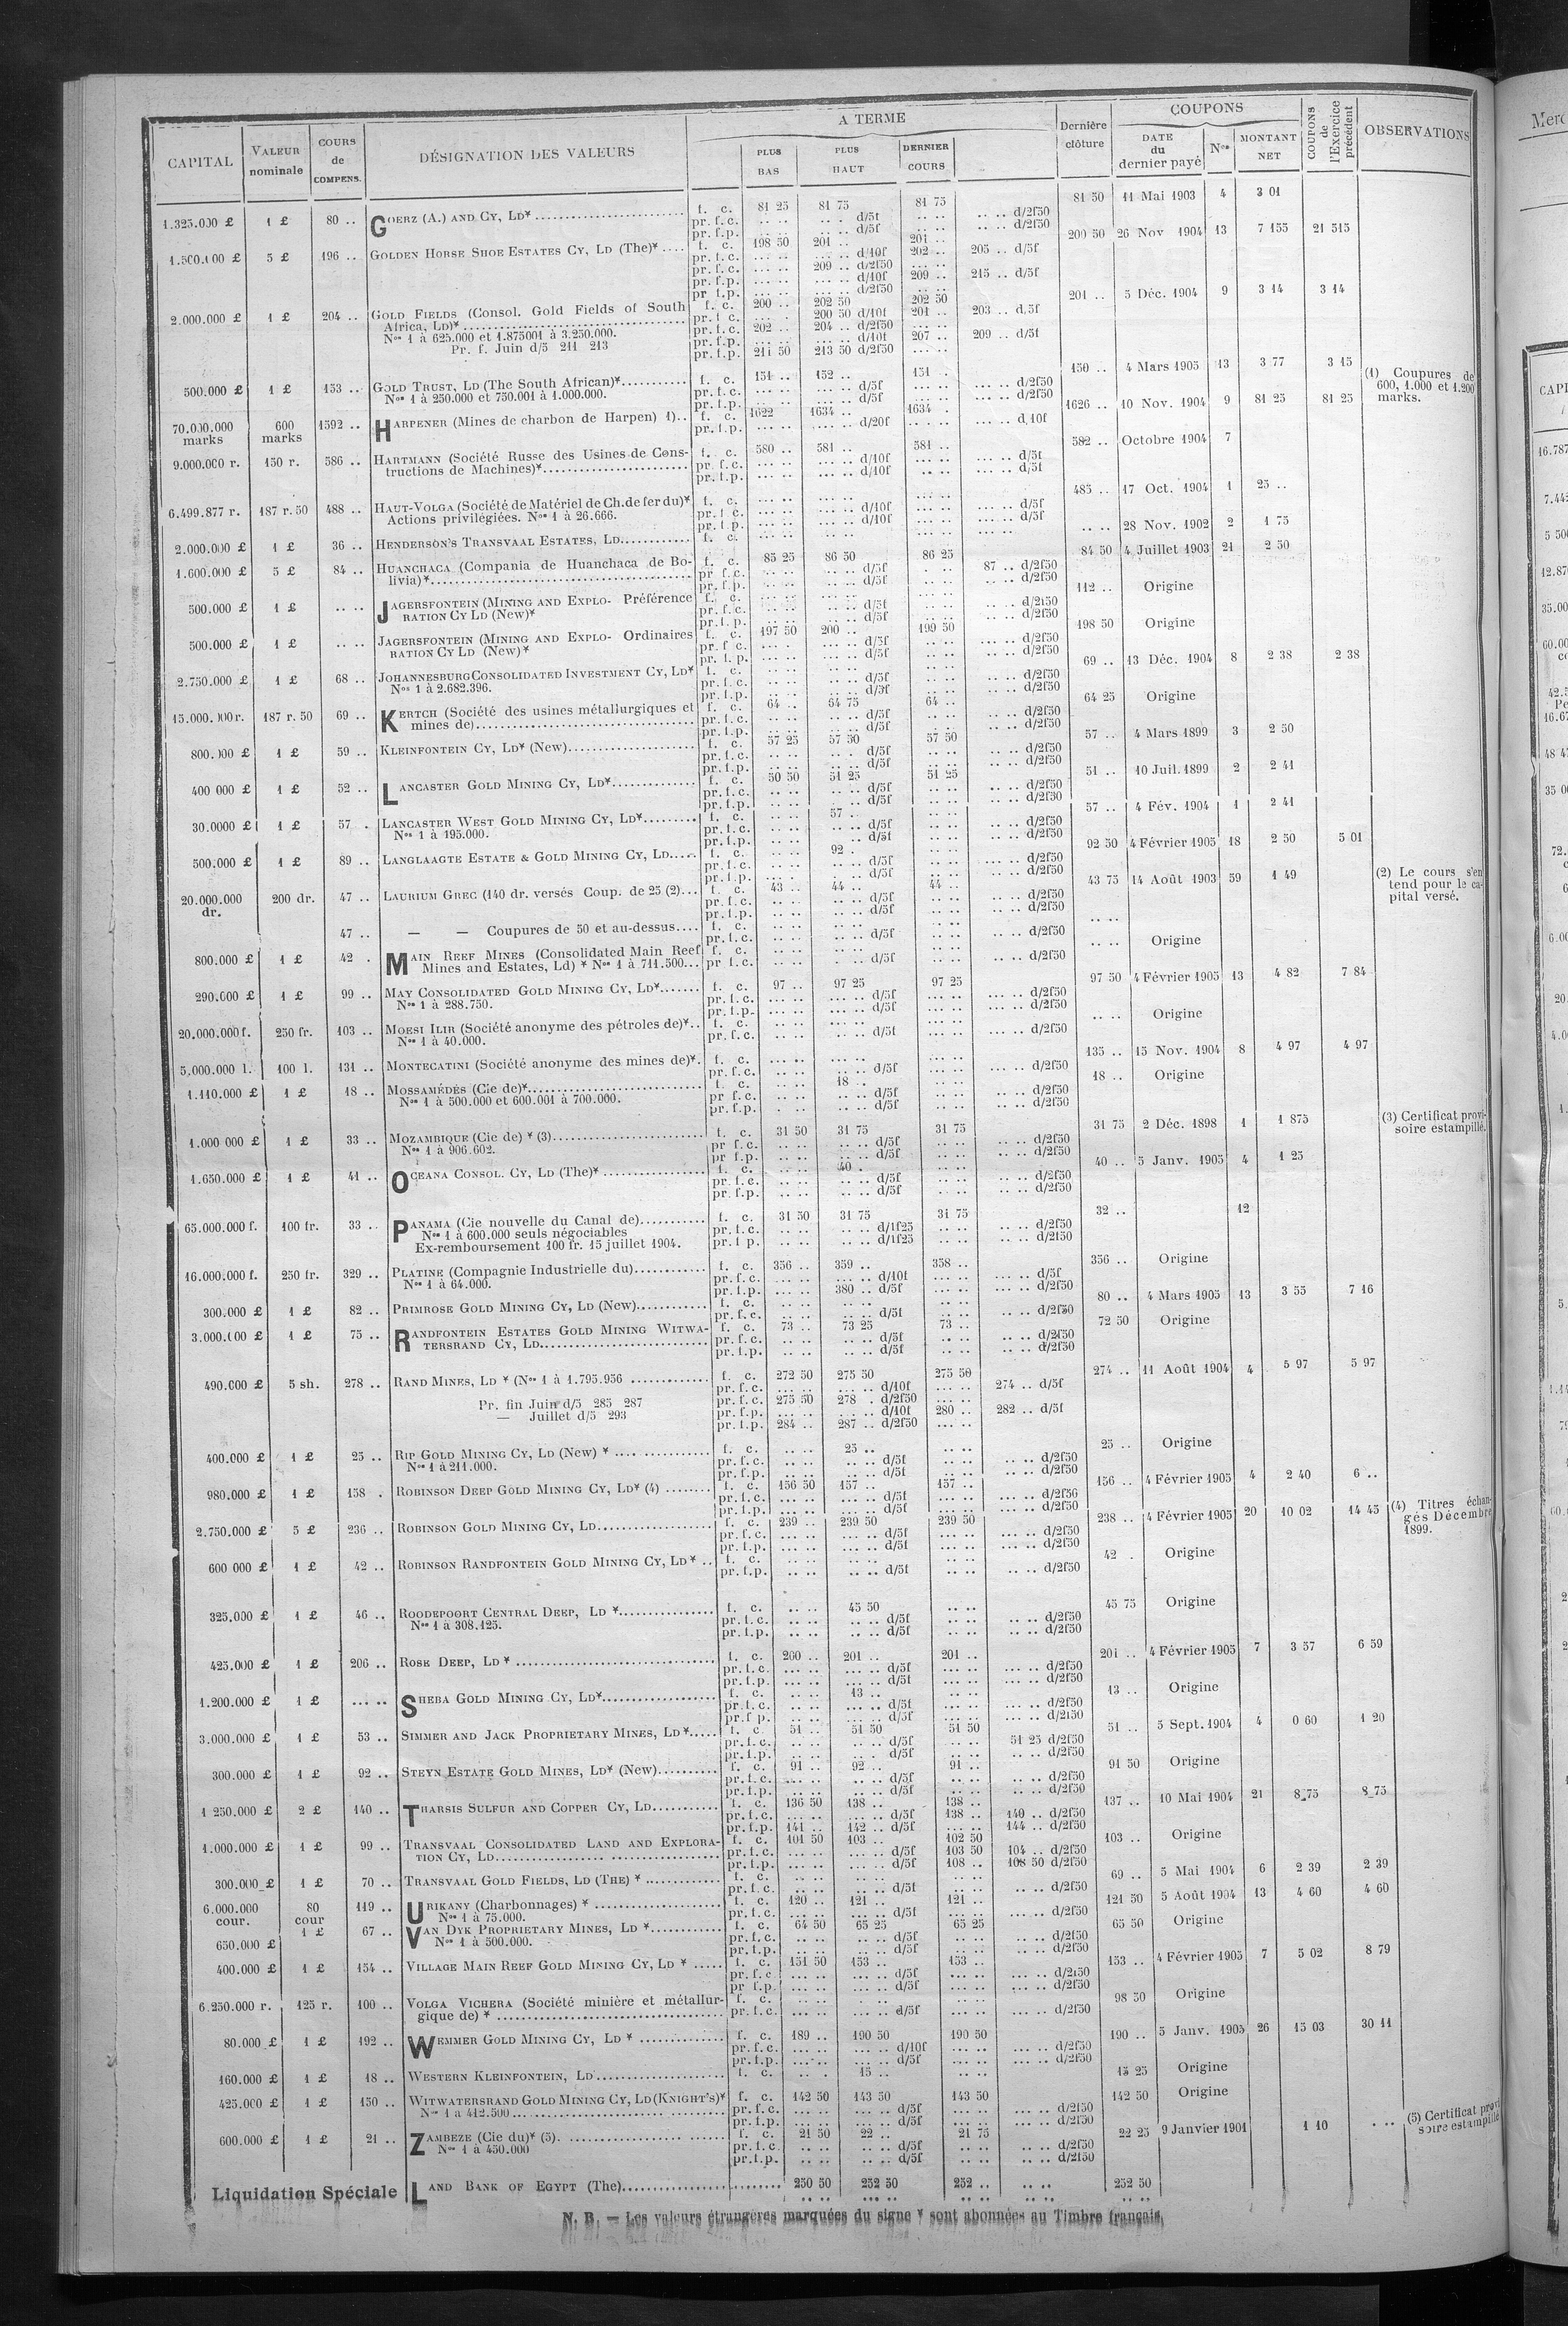 CAPITAL | VALEUR nominale | COURS de COMPENS. | DÉSIGNATION DES VALEURS | A TERME | PLUS BAS | PLUS HAUT | DERNIER COURS | Dernière clôture | COUPONS | DATE du dernier payé | Nos | MONTANT NET | COUPONS de l'Exercice précédent | OBSERVATIONS
1.325.000 £ 1 £ 80 .. GOERZ (A.) AND CY, LD* f. c. 81 25 81 75 81 75 81 50 11 Mai 1903 4 3 01
pr. f.c. .. .. .. .. d/5f .. .. .. .. d/2f50
pr. f.p. .. .. .. .. d/5f .. .. .. .. d/2f50
5 £ 196 .. GOLDEN HORSE SHOE ESTATES CY, LD (The)* f. c. 198 50 201 .. 201 .. 200 50 26 Nov 1904 13 7 155 21 515
pr. f.c. ... .. ... .. d/10f 202 .. 205 .. d/5f
pr. f.c. ... .. 209 .. d/2f50 ... ..
pr. f.p. ... .. ... .. d/10f 209 .. 215 .. d/5f
pr. f.p. ... .. ... .. d/2f50
2.000.000 £ 1 £ 204 .. GOLD FIELDS (Consol. Gold Fields of South f. c. 200 .. 202 50 202 50 201 .. 5 Déc. 1904 9 3 14 3 14
Africa, LD)* pr. f.c. 200 50 d/10f 201 .. 203 .. d/5f
Nos 1 à 625.000 et 1.875001 à 3.250.000. pr. f.c. 202 .. 204 .. d/2f50
Pr. f. Juin d/5 211 213 pr. f.p. ... .. ... .. d/10f 207 .. 209 .. d/5f
pr. f.p. 211 50 213 50 d/2f50 ... ..
500.000 £ 1 £ 153 .. GOLD TRUST, LD (The South African)* f. c. 151 .. 152 .. 151 .. 150 .. 4 Mars 1905 13 3 77 3 15 (1) Coupures de
Nos 1 à 250.000 et 750.001 à 1.000.000. pr. f.c. ... .. d/5f d/2f50 600, 1.000 et 1.200
pr. f.p. ... .. d/5f d/2f50 marks.
70.000.000 marks 600 marks 1592 .. HARPENER (Mines de charbon de Harpen) 1) f. c. 1622 1634 .. 1634 . 1626 .. 10 Nov. 1904 9 81 25 81 25
pr. f.p. d/20f d/10f
9.000.000 r. 150 r. 586 .. HARTMANN (Société Russe des Usines de Cons- f. c. 580 .. 581 .. 581 .. 582 .. Octobre 1904 7
tructions de Machines)* pr. f.c. d/10f d/5f
pr. f.p. d/10f d/5f
6.499.877 r. 187 r. 50 488 .. HAUT-VOLGA (Société de Matériel de Ch.de fer du)* f. c. 485 .. 17 Oct. 1904 1 25 ..
Actions privilégiées. Nos 1 à 26.666. pr. f.c. d/10f d/5f
pr. f.p. d/10f d/5f
2.000.000 £ 1 £ 36 .. HENDERSON'S TRANSVAAL ESTATES, LD f. c. .. .. 28 Nov. 1902 2 1 75
1.600.000 £ 5 £ 84 .. HUANCHACA (Compania de Huanchaca de Bo- f. c. 85 25 86 50 86 25 84 50 4 Juillet 1903 21 2 50
livia)* pr. f.c. d/5f 87 .. d/2f50
pr. f.p. d/5f d/2f50
500.000 £ 1 £ .. .. JAGERSFONTEIN (MINING AND EXPLO- Préférence f. c. 112 .. Origine
RATION CY LD (New)* pr. f.c. d/5f d/2f50
pr. f.p. d/5f d/2f50
500.000 £ 1 £ .. .. JAGERSFONTEIN (MINING AND EXPLO- Ordinaires f. c. 197 50 200 .. 199 50 198 50 Origine
RATION CY LD (New)* pr. f.c. d/5f d/2f50
pr. f.p. d/5f d/2f50
2.750.000 £ 1 £ 68 .. JOHANNESBURG CONSOLIDATED INVESTMENT CY, LD* f. c. 69 .. 13 Déc. 1904 8 2 38 2 38
Nos 1 à 2.682.396. pr. f.c. d/5f d/2f50
pr. f.p. d/5f d/2f50
15.000.000 r. 187 r. 50 69 .. KERTCH (Société des usines métallurgiques et f. c. 64 .. 64 75 64 .. 64 25 Origine
mines de) pr. f.c. d/5f d/2f50
pr. f.p. d/5f d/2f50
800.000 £ 1 £ 59 .. KLEINFONTEIN CY, LD* (New) f. c. 57 25 57 50 57 50 57 .. 4 Mars 1899 3 2 50
pr. f.c. d/5f d/2f50
pr. f.p. d/5f d/2f50
400 000 £ 1 £ 52 .. LANCASTER GOLD MINING CY, LD* f. c. 50 50 51 25 51 25 51 .. 10 Juil. 1899 2 2 41
pr. f.c. d/5f d/2f50
pr. f.p. d/5f d/2f50
30.0000 £ 1 £ 57 . LANCASTER WEST GOLD MINING CY, LD* f. c. 57 .. 57 .. 4 Fév. 1904 1 2 41
Nos 1 à 195.000. pr. f.c. d/5f d/2f50
pr. f.p. d/5f d/2f50
500.000 £ 1 £ 89 .. LANGLAAGTE ESTATE & GOLD MINING CY, LD f. c. 92 . 92 50 4 Février 1905 18 2 50 5 01
pr. f.c. d/5f d/2f50
pr. f.p. d/5f d/2f50
20.000.000 dr. 200 dr. 47 .. LAURIUM GREC (140 dr. versés Coup. de 25 (2) f. c. 43 .. 44 .. 44 .. 43 75 14 Août 1903 59 1 49 (2) Le cours s'en
pr. f.c. d/5f d/2f50 tend pour le ca-
pr. f.p. d/5f d/2f50 pital versé.
47 .. — — Coupures de 50 et au-dessus f. c. .. ..
pr. f.c. d/5f d/2f50
800.000 £ 1 £ 42 . MAIN REEF MINES (Consolidated Main Reef f. c. .. .. Origine
Mines and Estates, Ld) * Nos 1 à 711.500 pr f.c. d/5f d/2f50
290.000 £ 1 £ 99 .. MAY CONSOLIDATED GOLD MINING CY, LD* f. c. 97 .. 97 25 97 25 97 50 4 Février 1905 13 4 82 7 84
Nos 1 à 288.750. pr. f.c. d/5f d/2f50
pr. f.p. d/5f d/2f50
20.000.000 f. 250 fr. 103 .. MOESI ILIR (Société anonyme des pétroles de)* f. c. .. .. Origine
Nos 1 à 40.000. pr. f.c. d/5f d/2f50
5.000.000 l. 100 l. 131 .. MONTECATINI (Société anonyme des mines de)* f. c. 135 .. 15 Nov. 1904 8 4 97 4 97
pr. f.c. d/5f d/2f50
1.110.000 £ 1 £ 18 .. MOSSAMÉDÈS (Cie de)* f. c. 18 .. 18 .. Origine
Nos 1 à 500.000 et 600.001 à 700.000. pr f.c. d/5f d/2f50
pr. f.p. d/5f d/2f50
1.000 000 £ 1 £ 33 .. MOZAMBIQUE (Cie de) * (3) f. c. 31 50 31 75 31 75 31 75 2 Déc. 1898 1 1 875 (3) Certificat provi-
Nos 1 à 906.602. pr f.c. d/5f d/2f50 soire estampillé.
pr f.p. d/5f d/2f50
1.650.000 £ 1 £ 41 .. OCEANA CONSOL. CY, LD (The)* f. c. 40 . 40 .. 5 Janv. 1905 4 1 25
pr. f.c. d/5f d/2f50
pr. f.p. d/5f d/2f50
65.000.000 f. 100 fr. 33 .. PANAMA (Cie nouvelle du Canal de) f. c. 31 50 31 75 31 75 32 .. 12
Nos 1 à 600.000 seuls négociables pr. f.c. d/1f25 d/2f50
Ex-remboursement 100 fr. 15 juillet 1904. pr. f p. d/1f25 d/2f50
16.000.000 f. 250 fr. 329 .. PLATINE (Compagnie Industrielle du) f. c. 356 .. 359 .. 358 .. 356 .. Origine
Nos 1 à 64.000. pr. f.c. d/10f d/5f
pr. f.p. 380 .. d/5f d/2f50
300.000 £ 1 £ 82 .. PRIMROSE GOLD MINING CY, LD (New) f. c. 80 .. 4 Mars 1905 13 3 55 7 16
pr. f.c. d/5f d/2f50
3.000.000 £ 1 £ 75 .. RANDFONTEIN ESTATES GOLD MINING WITWA- f. c. 73 .. 73 25 73 .. 72 50 Origine
TERSRAND CY, LD pr. f.c. d/5f d/2f50
pr. f.p. d/5f d/2f50
490.000 £ 5 sh. 278 .. RAND MINES, LD * (Nos 1 à 1.795.956 f. c. 272 50 275 50 275 50 274 .. 11 Août 1904 4 5 97 5 97
pr. f.c. d/10f 274 .. d/5f
Pr. fin Juin d/5 285 287 pr. f.c. 275 50 278 . d/2f50
— Juillet d/5 293 pr. f.p. d/10f 280 .. 282 .. d/5f
pr. f.p. 284 .. 287 .. d/2f50
400.000 £ 1 £ 25 .. RIP GOLD MINING CY, LD (New) * f. c. 25 .. 25 .. Origine
Nos 1 à 211.000. pr. f.c. d/5f d/2f50
pr. f.p. d/5f d/2f50
980.000 £ 1 £ 158 . ROBINSON DEEP GOLD MINING CY, LD* (4) f. c. 156 50 157 .. 157 .. 156 .. 4 Février 1905 4 2 40 6 ..
pr. f.c. d/5f d/2f50
pr. f.p. d/5f d/2f50
2.750.000 £ 5 £ 236 .. ROBINSON GOLD MINING CY, LD f. c. 239 .. 239 50 239 50 238 .. 4 Février 1905 20 10 02 14 45 (4) Titres échan-
pr. f.c. d/5f d/2f50 gés Décembre
pr. f.p. d/5f d/2f50 1899.
600 000 £ 1 £ 42 .. ROBINSON RANDFONTEIN GOLD MINING CY, LD* f. c. 42 . Origine
pr. f.p. d/5f d/2f50
325.000 £ 1 £ 46 .. ROODEPOORT CENTRAL DEEP, LD * f. c. 45 50 45 75 Origine
Nos 1 à 308.125. pr. f.c. d/5f d/2f50
pr. f.p. d/5f d/2f50
425.000 £ 1 £ 206 .. ROSE DEEP, LD * f. c. 200 .. 201 .. 201 .. 201 .. 4 Février 1905 7 3 57 6 59
pr. f.c. d/5f d/2f50
pr. f.p. d/5f d/2f50
1.200.000 £ 1 £ ... .. SHEBA GOLD MINING CY, LD* f. c. 13 .. 13 .. Origine
pr. f.c. d/5f d/2f50
pr. f p. d/5f d/2f50
3.000.000 £ 1 £ 53 .. SIMMER AND JACK PROPRIETARY MINES, LD* f. c. 51 .. 51 50 51 50 51 .. 5 Sept. 1904 4 0 60 1 20
pr. f.c. d/5f 51 25 d/2f50
pr. f.p. d/5f d/2f50
300.000 £ 1 £ 92 .. STEYN ESTATE GOLD MINES, LD* (New) f. c. 91 .. 92 .. 91 .. 91 50 Origine
pr. f.c. d/5f d/2f50
pr. f.p. d/5f d/2f50
1 250.000 £ 2 £ 140 .. THARSIS SULFUR AND COPPER CY, LD f. c. 136 50 138 .. 138 .. 137 .. 10 Mai 1904 21 8 75 8 75
pr. f.c. d/5f 138 .. 140 .. d/2f50
pr. f.p. 141 .. 142 .. d/5f 144 .. d/2f50
1.000.000 £ 1 £ 99 .. TRANSVAAL CONSOLIDATED LAND AND EXPLORA- f. c. 101 50 103 .. 102 50 103 .. Origine
TION CY, LD pr. f.c. d/5f 103 50 104 .. d/2f50
pr. f.p. d/5f 108 .. 108 50 d/2f50
300.000 £ 1 £ 70 .. TRANSVAAL GOLD FIELDS, LD (THE) * f. c. 69 .. 5 Mai 1904 6 2 39 2 39
pr. f.c. d/5f d/2f50
6.000.000 cour. 80 cour 119 .. URIKANY (Charbonnages) * f. c. 120 .. 121 .. 121 .. 121 50 5 Août 1904 13 4 60 4 60
Nos 1 à 75.000. pr. f.c. d/5f d/2f50
650.000 £ 1 £ 67 .. VAN DYK PROPRIETARY MINES, LD * f. c. 64 50 65 25 65 25 65 50 Origine
Nos 1 à 500.000. pr. f.c. d/5f d/2f50
pr. f.p. d/5f d/2f50
400.000 £ 1 £ 154 .. VILLAGE MAIN REEF GOLD MINING CY, LD * f. c. 151 50 153 .. 153 .. 153 .. 4 Février 1905 7 5 02 8 79
pr. f.c d/5f d/2f50
pr f.p. d/5f d/2f50
6.250.000 r. 125 r. 100 .. VOLGA VICHERA (Société minière et métallur- f. c. 98 50 Origine
gique de) * pr. f.c. d/5f d/2f50
80.000 £ 1 £ 192 .. WEMMER GOLD MINING CY, LD * f. c. 189 .. 190 50 190 50 190 .. 5 Janv. 1905 26 15 03 30 11
pr. f.c. d/10f d/2f50
pr. f.p. d/5f d/2f50
160.000 £ 1 £ 18 .. WESTERN KLEINFONTEIN, LD f. c. 15 .. 15 25 Origine
425.000 £ 1 £ 150 .. WITWATERSRAND GOLD MINING CY, LD (KNIGHT'S)* f. c. 142 50 143 50 143 50 142 50 Origine
Nos 1 à 412.500 pr. f.c. d/5f d/2f50
pr. f.p. d/5f d/2f50
600.000 £ 1 £ 21 .. ZAMBEZE (Cie du)* (5). f. c. 21 50 22 .. 21 75 22 25 9 Janvier 1901 1 10 (5) Certificat provi
Nos 1 à 450.000 pr. f.c. d/5f d/2f50 soire estampillé
pr. f.p. d/5f d/2f50
Liquidation Spéciale LAND BANK OF EGYPT (The) 250 50 252 50 252 .. .. .. 252 50
N. B. — Les valeurs étrangères marquées du signe * sont abonnées au Timbre français.